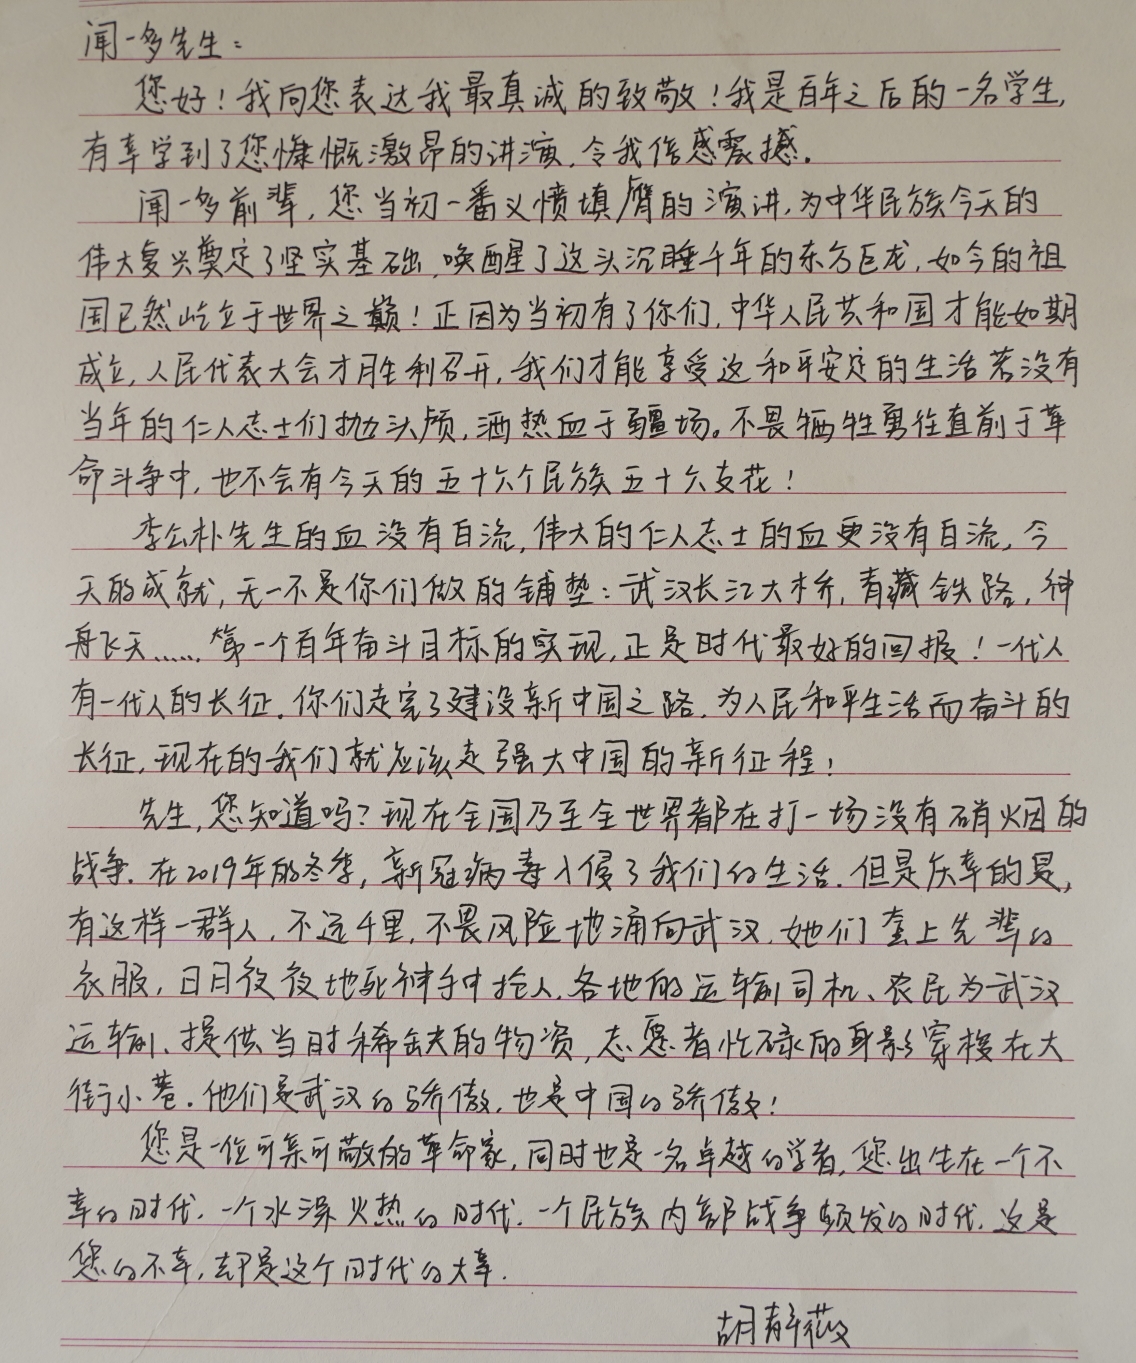 闻一多先生：
您好！我向您表达我最真诚的致敬！我是百年之后的一名学生，
有幸学到了您慷慨激昂的讲演，令我倍感震撼。
闻一多前辈，您当初一番义愤填膺的演讲，为中华民族今天的
伟大复兴奠定了坚实基础，唤醒了这头沉睡千年的东方巨龙，如今的祖
国已然屹立于世界之巅！正因为当初有了你们，中华人民共和国才能如期
成立，人民代表大会才胜利召开，我们才能享受这和平安定的生活若没有
当年的仁人志士们抛头颅，洒热血于疆场。不畏牺牲勇往直前于革
命斗争中，也不会有今天的五十六个民族五十六支花！
李公朴先生的血没有白流，伟大的仁人志士的血更没有白流，今
天的成就，无一不是你们做的铺垫：武汉长江大桥，青藏铁路，神
舟飞天……第一个百年奋斗目标的实现，正是时代最好的回报！一代人
有一代人的长征，你们走完了建设新中国之路，为人民和平生活而奋斗的
长征，现在的我们就应该走强大中国的新征程！
先生，您知道吗？现在全国乃至全世界都在打一场没有硝烟的
战争，在2019年的冬季，新冠病毒入侵了我们的生活，但是庆幸的是，
有这样一群人，不远千里，不畏风险地涌向武汉，她们套上先辈的
衣服，日日夜夜地死神手中抢人，各地的运输司机、农民为武汉
运输、提供当时稀缺的物资，志愿者忙碌的身影穿梭在大
街小巷，他们是武汉的骄傲，也是中国的骄傲！
您是一位可亲可敬的革命家，同时也是一名卓越的学者，您出生在一个不
幸的时代，一个水深火热的时代，一个民族内部战争频发的时代，这是
您的不幸，却是这个时代的大幸．
胡静薇